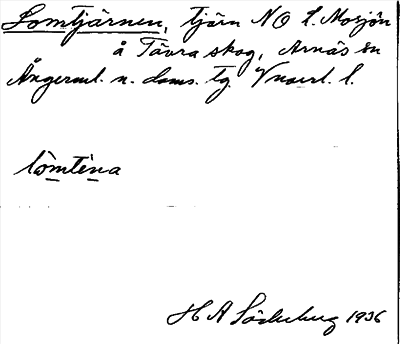 Lomtjärnen, tjärn NO L. Mosjön
å Tävra skog, Arnäs sn
Ångerml. n. doms. tg. Vnorrl. l.
lòmtèna
H A Söderberg 1936